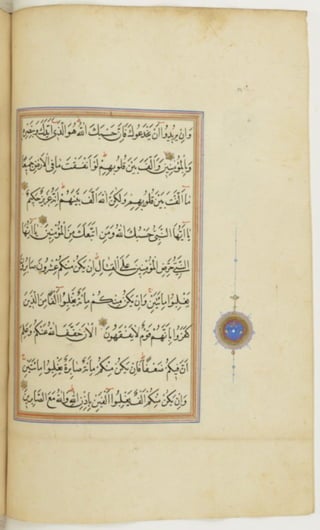 وَاِنْ يُرِيدُوا اَنْ يَخْدَعُوكَ فَاِنَّ حَسْبَكَ اللّٰهُ هُوَ الَّذِي اَيَّدَكَ بِنَصْرِهِ
وَبِالْمُؤْمِنِينَ وَاَلَّفَ بَيْنَ قُلُوبِهِمْ لَوْ اَنْفَقْتَ مَا فِي الْاَرْضِ جَمِيعًا
مَا اَلَّفْتَ بَيْنَ قُلُوبِهِمْ وَلٰكِنَّ اللّٰهَ اَلَّفَ بَيْنَهُمْ اِنَّهُ عَزِيزٌ حَكِيمٌ
يَا اَيُّهَا النَّبِيُّ حَسْبُكَ اللّٰهُ وَمَنِ اتَّبَعَكَ مِنَ الْمُؤْمِنِينَ يَا اَيُّهَا
النَّبِيُّ حَرِّضِ الْمُؤْمِنِينَ عَلَى الْقِتَالِ اِنْ يَكُنْ مِنْكُمْ عِشْرُونَ صَابِرُونَ
يَغْلِبُوا مِائَتَيْنِ وَاِنْ يَكُنْ مِنْكُمْ مِائَةٌ يَغْلِبُوا اَلْفًا مِنَ الَّذِينَ
كَفَرُوا بِاَنَّهُمْ قَوْمٌ لَا يَفْقَهُونَ الْاٰنَ خَفَّفَ اللّٰهُ عَنْكُمْ وَعَلِمَ
اَنَّ فِيكُمْ ضَعْفًا فَاِنْ يَكُنْ مِنْكُمْ مِائَةٌ صَابِرَةٌ يَغْلِبُوا مِائَتَيْنِ
وَاِنْ يَكُنْ مِنْكُمْ اَلْفٌ يَغْلِبُوا اَلْفَيْنِ بِاِذْنِ اللّٰهِ وَاللّٰهُ مَعَ الصَّابِرِينَ